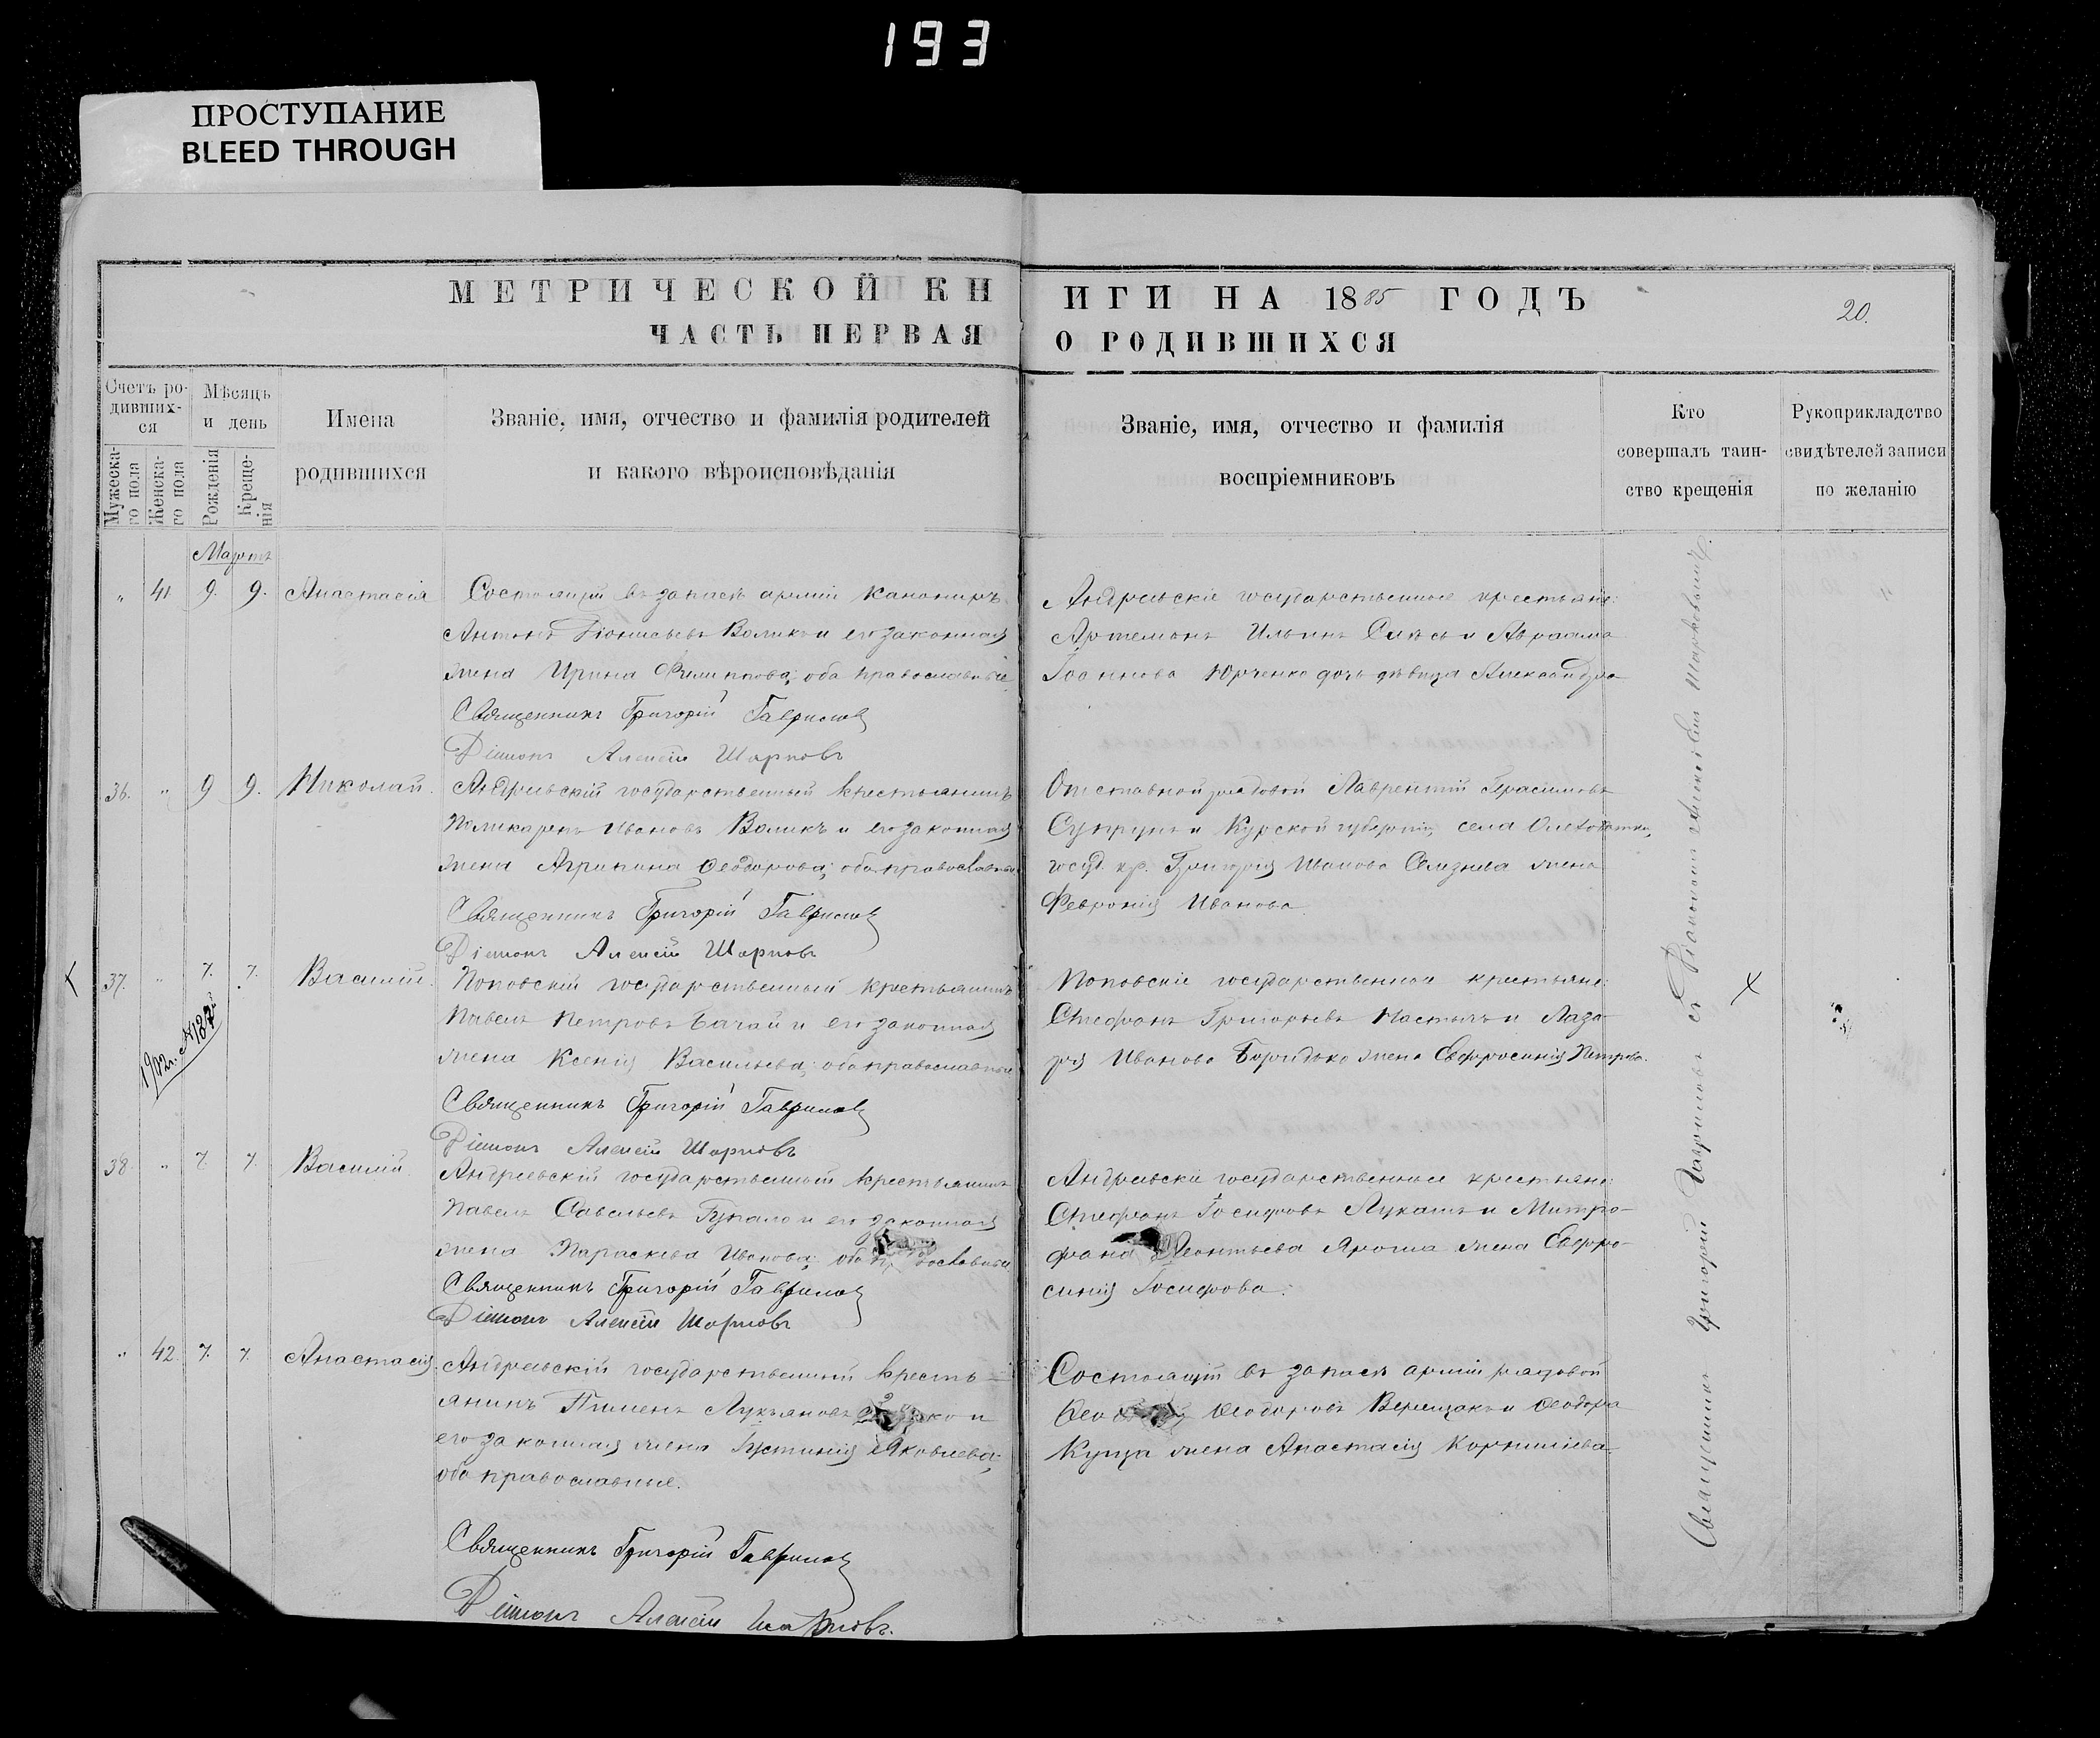 193
ПРОСТУПАНИЕ
BLEED THROUGH
МЕТРИЧЕСКОЙ КНИГИ НА 1885 ГОДЪ
20.
ЧАСТЬ ПЕРВАЯ О РОДИВШИХСЯ
Счетъ ро-
дивших-
ся
Мужеска-
го пола
Женска-
го пола
Мѣсяцъ
и день
Рожденія
Креще-
нія
Имена
родившихся
Званіе, имя, отчество и фамилія родителей
и какого вѣроисповѣданія
Званіе, имя, отчество и фамилія
воспріемниковъ
Кто
совершалъ таин-
ство крещенія
Рукоприкладство
свидѣтелей записи
по желанію
Мартъ
„ 41. 9. 9. Анастасія
Состоящій въ запасѣ арміи канониръ
Антонъ Діонисьевъ Воликъ и его законная
жена Ирина Филиппова; оба православные
Священникъ Григорій Гавриловъ
Діаконъ Алексій
Андреевскіе государственные крестьяне:
Артемонъ Ильинъ и Авраама
Іоаннова Юрченко дочь дѣвица Александра
36. „ 9 9. Николай.
Андреевскій государственный крестьянинъ
Поликарпъ Ивановъ Воликъ и его законная
жена Агрипина Ѳеодорова; оба православные
Священникъ Григорій Гавриловъ
Діаконъ Алексій
Отставной рядовой Лаврентій Герасимовъ
Супрунъ и Курской губерніи, села
госуд. кр. Григорія Иванова Селезнева жена
Февронія Иванова
37. „ 7. 7. Василій.
1912г. №187
Поповскій государственный крестьянинъ
Павелъ Петровъ Бачай и его законная
жена Ксенія Васильева; оба православные
Священникъ Григорій Гавриловъ
Діаконъ Алексій
Поповскіе государственные крестьяне:
Стефанъ Григорьевъ и Лаза-
ря Иванова жена Евфросинія Петрова.
38. „ 7. 7. Василій.
Андреевскій государственный крестьянинъ
Павелъ Савельевъ и его законная
жена Параскева Иванова; оба
Священникъ Григорій Гавриловъ
Діаконъ Алексій
Андреевскіе государственные крестьяне:
Стефанъ Іосифовъ Лукашъ и Митро-
фана Леонтьева Яроша жена Евфро-
синія Іосифова.
„ 42. 7. 7. Анастасія.
Андреевскій государственный кресть-
янинъ Пименъ Лукьяновъ и
его законная жена Іустинія Яковлева;
оба православные.
Священникъ Григорій Гавриловъ
Діаконъ Алексій
Состоящій въ запасѣ арміи рядовой
Ѳеодоровъ Верещакъ и Ѳеодора
Куща жена Анастасія Корнилиева
Священникъ Григорій Гавриловъ съ Діакономъ